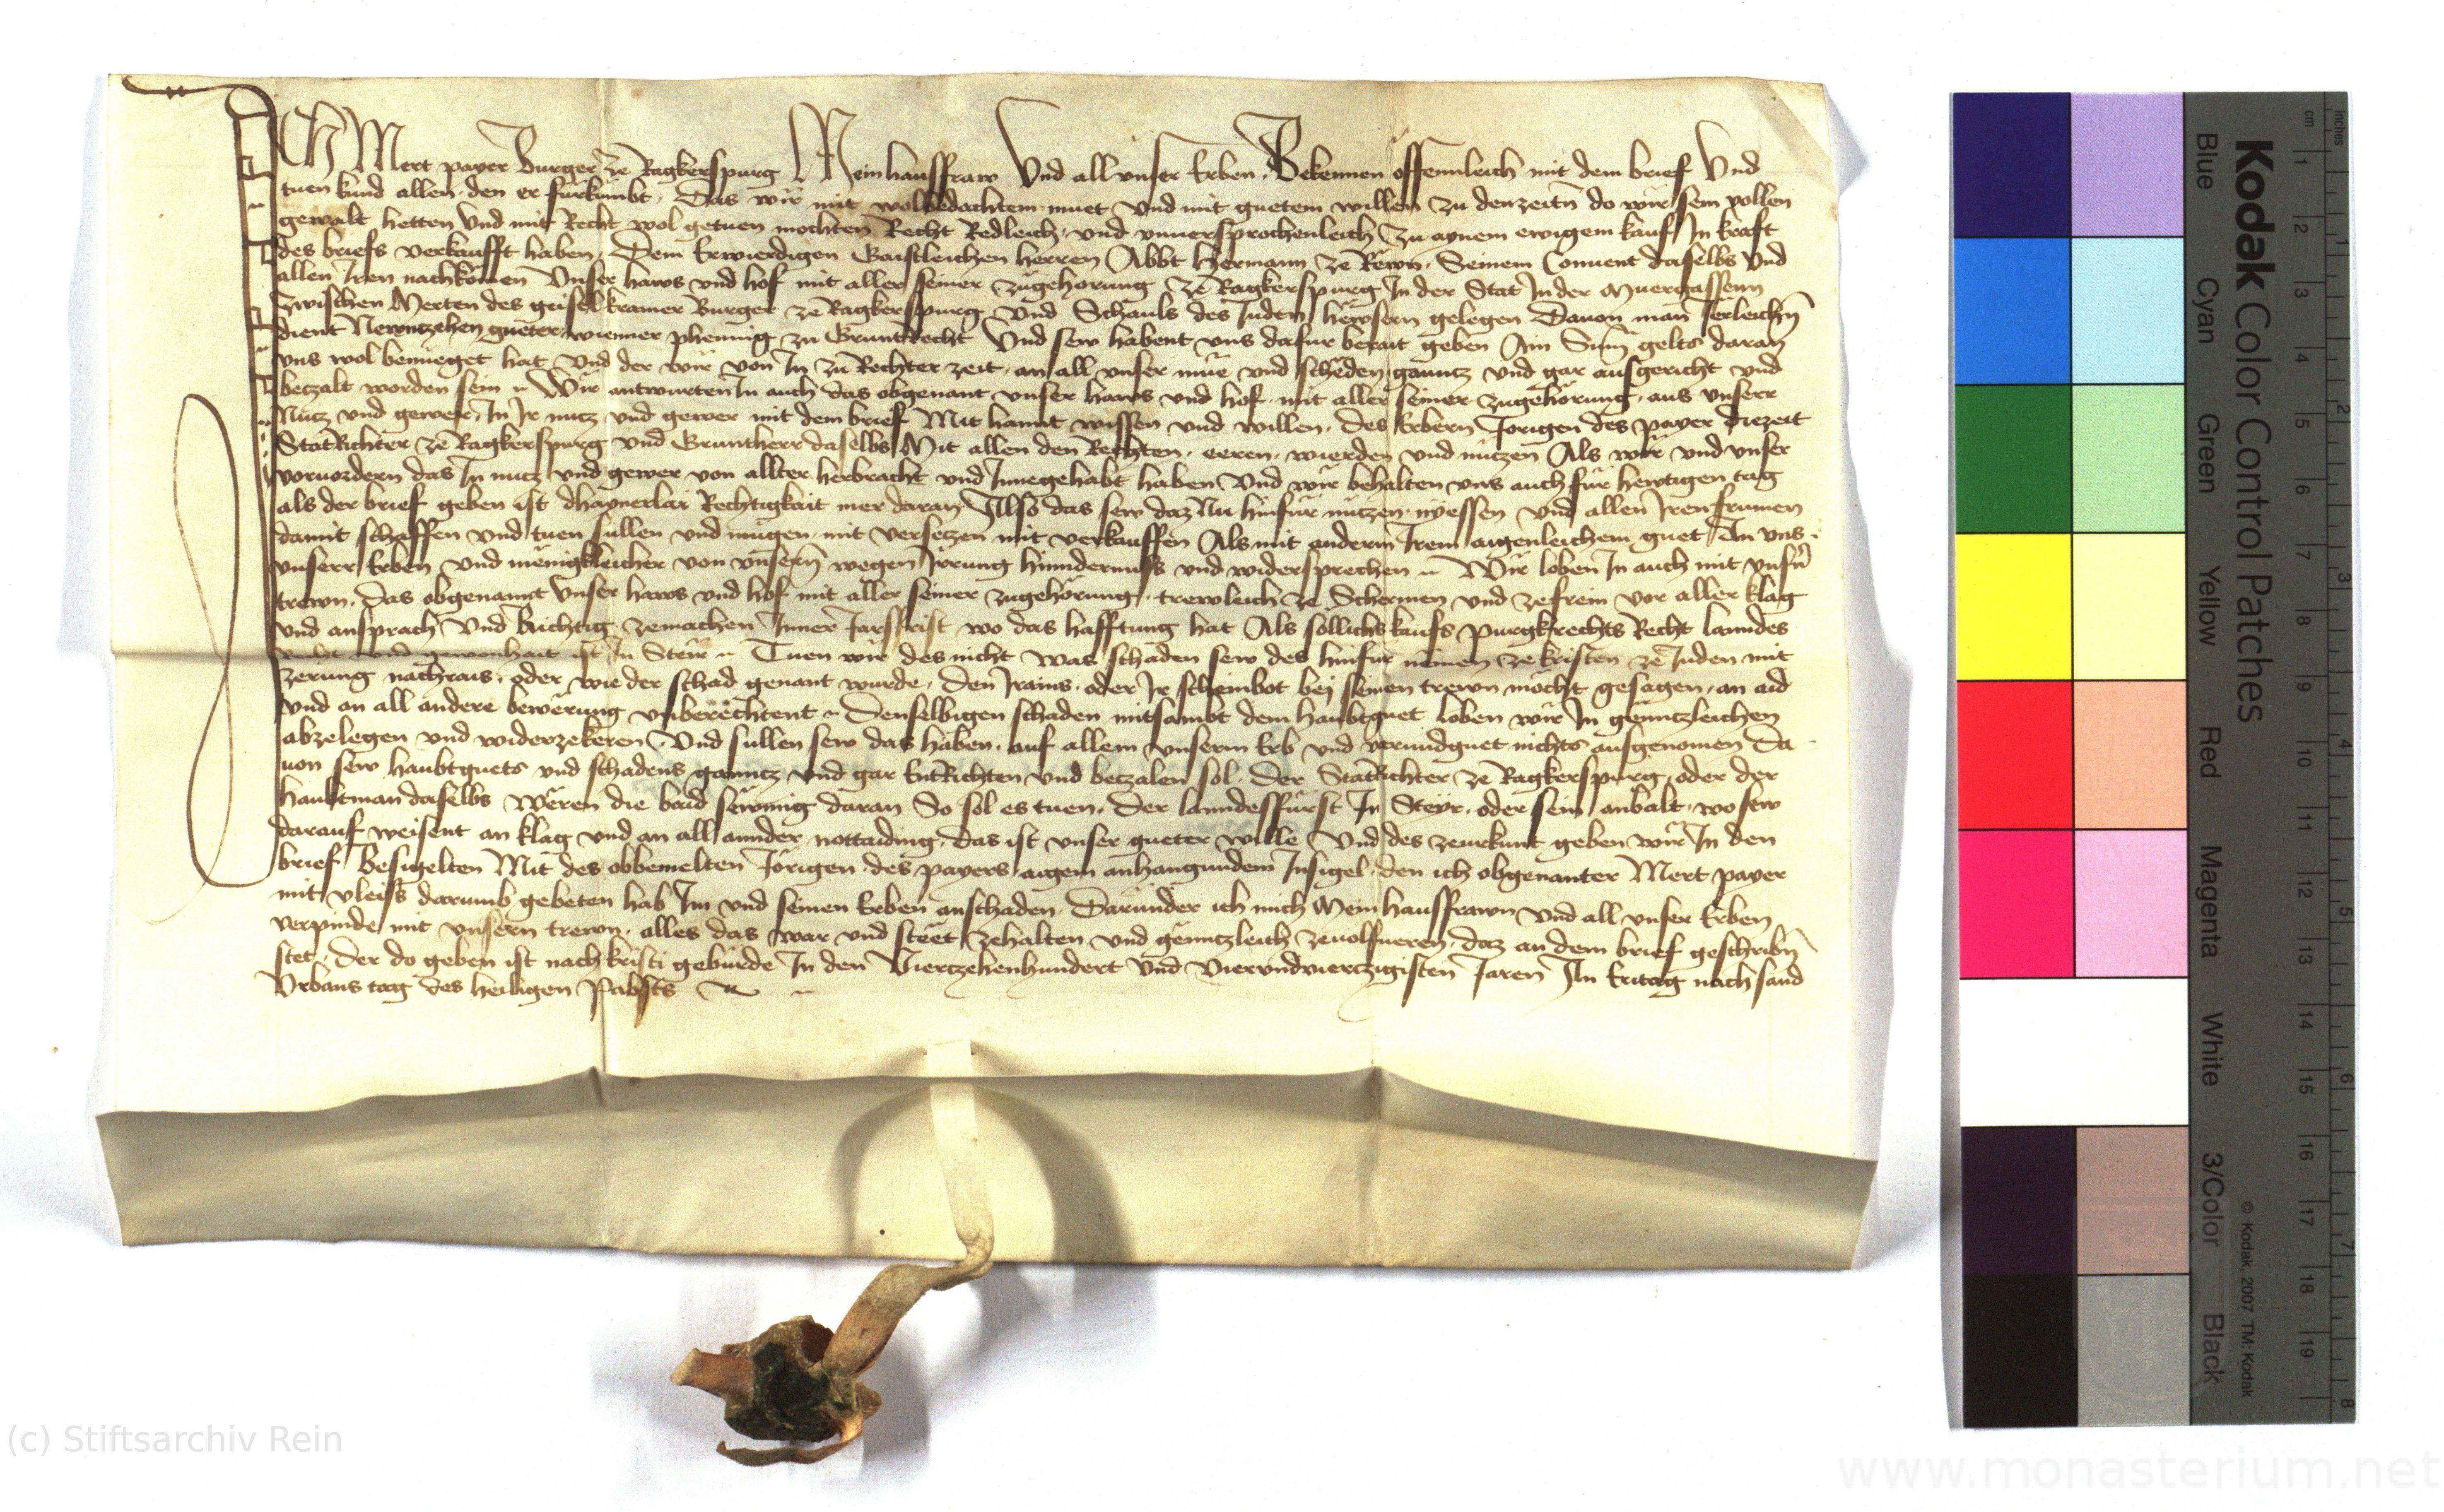 Ich Mert payer Burger ze Ragkerspurg Mein hausfraw Vnd all vnser Erben Bekennen offennleich mit dem brief Vnd
tuen kund allen den er furkumbt Das wir mit wolbedachtem muet vnd mit guetem willen zu denzeitn do wir sein vollen
gewalt hetten Vnd mit Recht wol getuen mochten Recht Redleich vnd vnuersprochenleich Zu aynem ewigem kauf In kraft
des briefs verkaufft haben Dem Erwierdigen Gaistleichen herren Abbt Hermann ze Rewn Seinem Conuent daselbs Vnd
allen Iren nachkomen Vnser haws vnd hof mit aller seiner zugehorung ze Ragkerspurg In der Stat In der Muergassenn
Zwischen Merten des geiselkramer Burger ze Ragkerspurg Vnd Schauls des Juden hewsern gelegen Dauon man Jerleichn
dient Newntzehen gueter wienner phennig zu Gruntrecht Vnd sew habent vns dafur berait geben Ain Sum gelts daran
vns wol benueget hat Vnd der wir von In zu Rechter zeit an all vnser mue vnd scheden ganntz vnd gar ausgericht vnd
beczalt worden sein Wir antwurten In auch das obgenant vnser haws vnd hof mit aller seiner zugehorung aus vnserr
Nutz vnd gewer In Ir nutz vnd gewer mit dem brief Mit hannt wissen vnd willen des Erbern Jorigen des payer diezeit
StatRichter ze Ragkerspurg vnd Gruntherr daselbs Mit allen den Rechten eeren wierden vnd nutzen Als wir vnd vnser
voruordern das In nutz vnd gewer von allter herbracht vnd Innegehabt haben Vnd wir behalten vns auch fur hewtigen tag
als der brief geben ist dhaynerlai Rechtigkait mer daran Also das sew daz Nu hinfur nutzen nyessen vnd allen Iren frumen
damit schaffen vnd tuen sullen vnd mugen mit versetzen mit verkauffen Als mit anderm Irem aigenleichem guet An vns
vnserr Erben vnd menigkleicher von vnsern wegen Irrung hinndernuss vnd widersprechen Wir loben In auch mit vnsern
trewn Das obgenannt Vnser haws vnd hof mit aller seiner zugehorung trewleich ze Schermen vnd zefrein vor aller klag
vnd ansprach Vnd zemachen Inner Jarsfrist wo das hafftung hat Als sollichs kaufs purgkrechts Recht lanndes
Recht vnd gewonhait ist In Steir Tuen wir des nicht Was schaden sew des hinfur nemen ze kristen ze Juden mit
zerung nachrais oder wie der schad genant wurde Den Irains oder Ir scheinbot bej seinen trewn mocht gesagen an aid
vnd an all andere bewerung vnberechtent Denselbigen schaden mitsambt dem haubtguet loben wir In genntzleichen
abzelegen vnd widerzekeren Vnd sullen sew das haben auf allem vnserm Erb vnd varundguet nichts ausgenomen Da
uon sew haubtguets vnd schadens ganntz vnd gar EntRichten vnd beczalen sol Der StatRichter ze Ragkerspurg oder der
haubtman daselbs weren die baid sewmig daran So sol es tuen Der lanndesfurst In Steyr oder sein anbalt wo sew
darauf weisent an klag vnd an all annder nottaiding Das ist vnser gueter wille Vnd des zeurkunt geben wir In den
brief Besigelten Mit des obbemelten Jorigen des payers aigem anhangundem Insigel den ich obgenanter Mert payer
mit vleiss darumb gebeten hab Im vnd seinen Erben anschaden Darunder ich mich Mein hausfrawn vnd all vnser Erben
verpinde mit vnsern trewn alles das war vnd steet zehalten vnd genntzleich zeuolfueren daz an dem brief geschribn
stet Der do geben ist nach kristi geburde In den Vierczehenhundert Vnd Vierundvierczigisten Jaren Am Eritag nach sand
Vrbans tag des heiligen Pabsts
Kodak Color Control Patches
Blue Cyan Green Yellow Red Magenta White 3/Color Black
© Kodak, 2007 TM: Kodak
cm 1 2 3 4 5 6 7 8 9 10 11 12 13 14 15 16 17 18 19
inches 1 2 3 4 5 6 7 8
(c) Stiftsarchiv Rein
www.monasterium.net